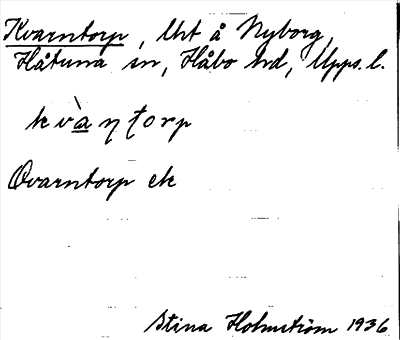 Kvarntorp, lht å Nyborg,
Håtuna sn, Håbo hd, Upps. l.
kvàꞃ̣ṭorp
Qvarntorp ek
Stina Holmström 1936